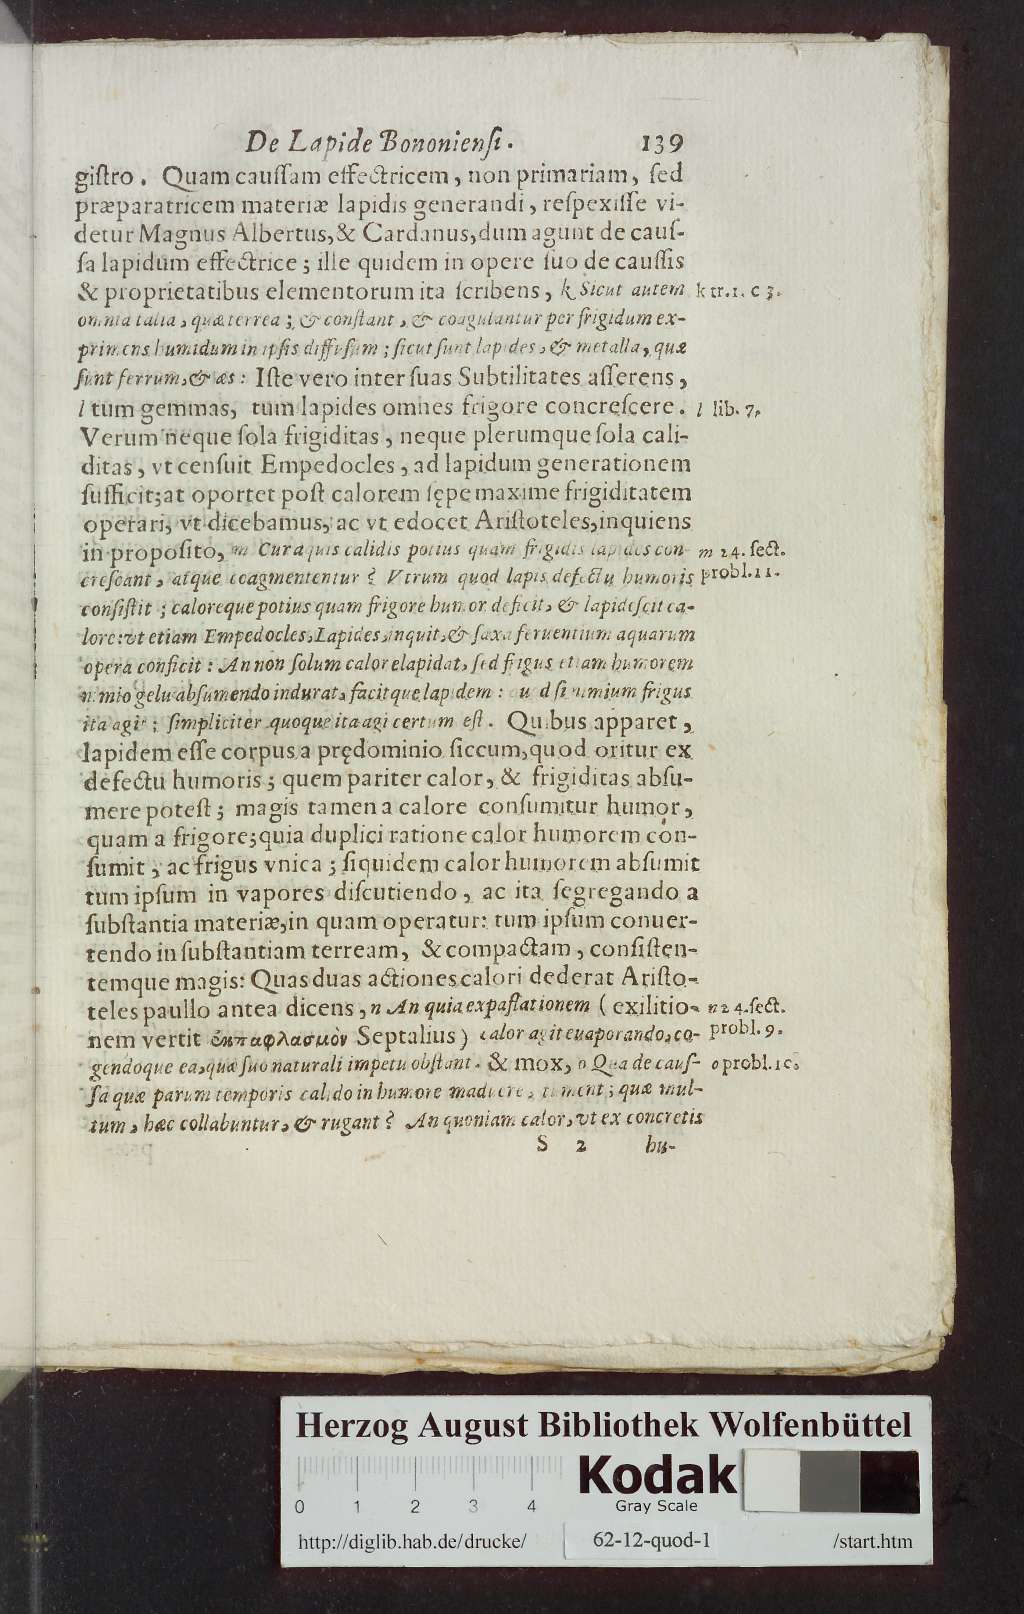 De Lapide Bononiensi. 139
gistro. Quam caussam effectricem, non primariam, sed
præparatricem materiæ lapidis generandi, respexisse vi-
detur Magnus Albertus, & Cardanus, dum agunt de caus-
sa lapidum effectrice; ille quidem in opere suo de caussis
& proprietatibus elementorum ita scribens, k Sicut autem k tr.1. c 3.
omnia talia, quæ terrea; & constant, & coagulantur per frigidum ex-
primens humidum in ipsis diffusum; sicut sunt lapides, & metalla, quæ
sunt ferrum, & æs: Iste vero inter suas Subtilitates asserens,
l tum gemmas, tum lapides omnes frigore concrescere. l lib. 7.
Verum neque sola frigiditas, neque plerumque sola cali-
ditas, vt censuit Empedocles, ad lapidum generationem
sufficit; at oportet post calorem sępe maxime frigiditatem
operari, vt dicebamus, ac vt edocet Aristoteles, inquiens
in proposito, m Cur aquis calidis potius quam frigidis lapides con- m 24. sect.
crescant, atque coagmententur? Vtrum quod lapis defectu humoris probl. 11.
consistit; caloreque potius quam frigore humor deficit, & lapidescit ca-
lore: vt etiam Empedocles, Lapides, inquit, & saxa feruentium aquarum
opera conficit: An non solum calore lapidat, sed frigus etiam humorem
nimio gelu absumendo indurat, facitque lapidem: quod si nimium frigus
ita agit; simpliciter quoque ita agi certum est. Quibus apparet,
lapidem esse corpus a prędominio siccum, quod oritur ex
defectu humoris; quem pariter calor, & frigiditas absu-
mere potest; magis tamen a calore consumitur humor,
quam a frigore; quia duplici ratione calor humorem con-
sumit, ac frigus vnica; siquidem calor humorem absumit
tum ipsum in vapores discutiendo, ac ita segregando a
substantia materiæ, in quam operatur: tum ipsum conuer-
tendo in substantiam terream, & compactam, consisten-
temque magis: Quas duas actiones calori dederat Aristo-
teles paullo antea dicens, n An quia expaflationem (exilitio- n 24. sect.
nem vertit ἐκπαφλασμὸν Septalius) calor agit euaporando, co- probl. 9.
gendoque ea, quæ suo naturali impetu obstant. & mox, o Qua de caus- o probl. 10.
sa quæ parum temporis calido in humore maduere, tument; quæ mul-
tum, hæc collabuntur, & rugant? An quoniam calor, vt ex concretis
S 2 hu-
Herzog August Bibliothek Wolfenbüttel
0 1 2 3 4
Kodak
Gray Scale
http://diglib.hab.de/drucke/ 62-12-quod-1 /start.htm